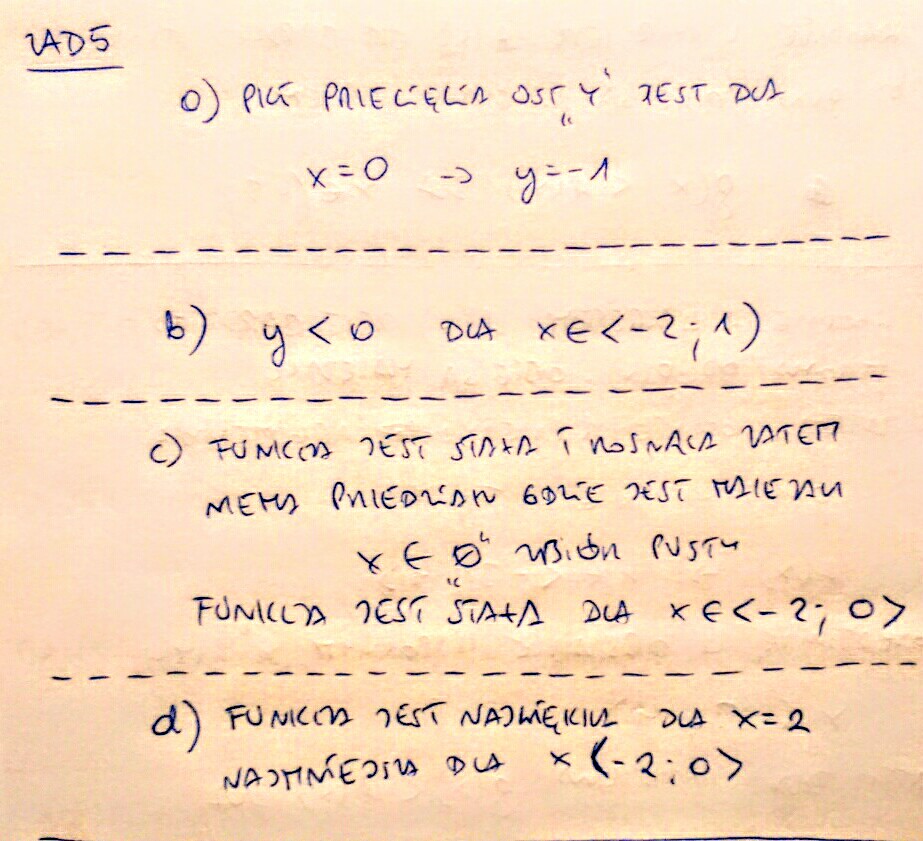 ZAD5
a) PKT PRZECIĘCIA OSI „Y" JEST DLA
x=0 -> y=-1
b) y < 0 DLA x∈<-2;1)
c) FUNKCJA JEST STAŁA I ROSNĄCA ZATEM
NIEMA PRZEDZIAŁU GDZIE JEST MALEJĄCA
x ∈ „Ø" ZBIÓR PUSTY
FUNKCJA JEST STAŁA DLA x∈<-2; 0>
d) FUNKCJA JEST NAJWIĘKSZA DLA x=2
NAJMNIEJSZA DLA x <-2;0>